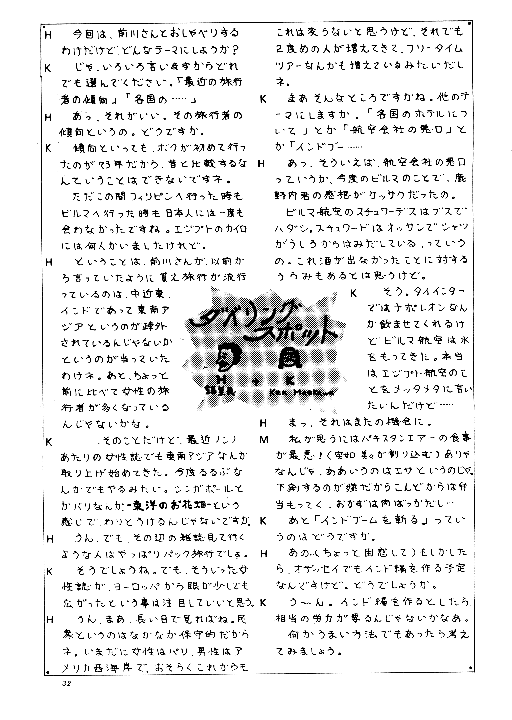 H 今回は、前川さんとおしゃべりする
わけだけど、どんなテーマにしようか？
K じゃ、いろいろ言いますからどれ
でも選んでください。「最近の旅行
者の傾向」「各国の……」
H あっ、それがいい。その旅行者の
傾向というの。どうですか。
K 傾向といっても、ボクが初めて行っ
たのが73年だから、昔と比較するな
んていうことはできないですネ。
ただこの間フィリピンへ行った時も
ビルマへ行った時も日本人には一度も
会わなかったですね。エジプトのカイロ
には何人かいましたけれど。
H ということは、前川さんが以前か
ら言っていたように貧乏旅行が流行
っているのは、中近東、
インドであって東南ア
ジアというのが疎外
されているんじゃないか
というのが当っていた
わけネ。あと、ちょっと
前に比べて女性の旅
行者が多くなっている
んじゃないかな。
K そのことだけど、最近ノンノ
あたりの女性誌でも東南アジアなんか
取り上げ始めてきた。今度るるぶな
んかでもやるみたい。シンガポールと
かバリなんか“東洋のお花畑”という
感じで、わりとうけるんじゃないですか。
H うん、でも、その辺の雑誌見て行く
ような人はやっぱりパック旅行でしょ。
K そうでしょうね。でも、そういった女
性誌が、ヨーロッパから眼が少しでも
広がったという事は注目していいと思う。
H うん、まあ、長い目で見ればね。民
衆というのはなかなか保守的だから
ネ。いまだに女性はパリ、男性はア
メリカ西海岸で、おそらくこれからも
これは変らないと思うけど、それでも
2度めの人が増えてきて、フリータイム
ツアーなんかも増えているみたいだし
ネ。
K まあそんなところですかね。他のテ
ーマにしますか。「各国のホテルにつ
いて」とか「航空会社の悪口」と
か「インドブー……
H あっ、そういえば、航空会社の悪口
っていうか、今度のビルマのことで、鹿
野内君の感想がケッサクだったの。
ビルマ航空のスチュワーデスはブスで
ハダシ。スチュワードはオッサンでシャツ
がうしろからはみだしている、っていう
の。これ酒が出なかったことに対する
うらみもあるとは思うけど。
K そう。タイインター
ではナポレオンなん
か飲ませてくれるけ
ど、ビルマ航空は水
をもってきた。本当
はエジプト航空のこ
とをメッタメタに言い
たいんだけど……
H まっ、それはまたの機会に。
M 私が思うにはパキスタンエアーの食事
が最悪！（突如Mが割り込む）ありゃ
なんじゃ、ああいうのはエサというのじゃ
K あと「インドブームを斬る」ってい
うのはどうですか。
H あの、（ちょっと困惑して）もしかした
ら、オデッセイでもインド編を作る予定
なんですけど。どうでしょうか。
K う〜ん。インド編を作るとしたら
相当の労力が要るんじゃないかなあ。
何かうまい方法でもあったら考え
てみましょう。
ダイリング
スポット
H
K
Ken Maekawa
32